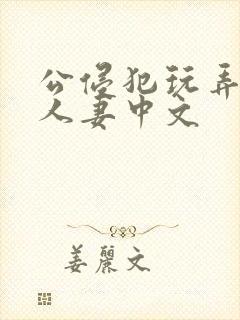 公侵犯玩弄
人妻中文
姜丽文